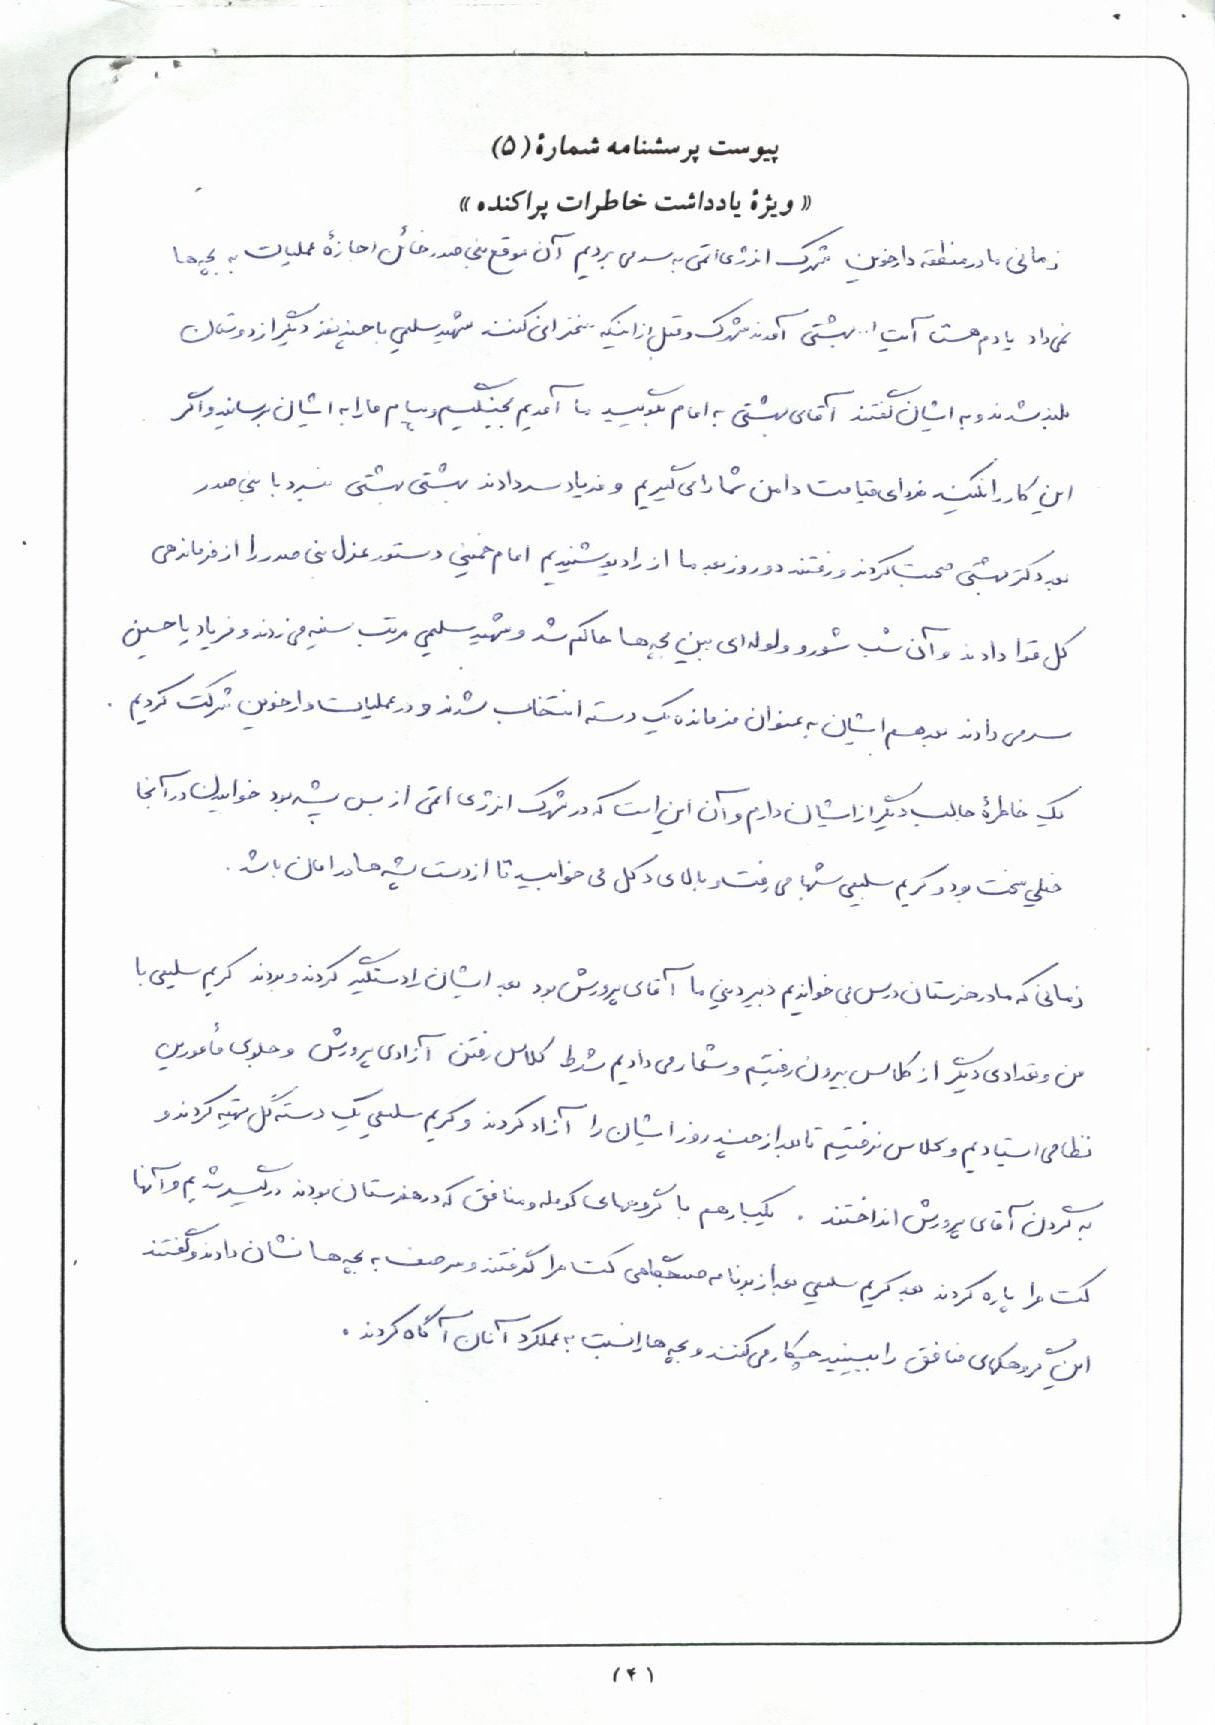 پیوست پرسشنامه شمارهٔ (۵)
« ویژهٔ یادداشت خاطرات پراکنده »
زمانی ما در منطقه دارخوین شهرک انرژی اتمی به سر می بردیم آن موقع بنی صدر خائن اجازهٔ عملیات به بچه ها
نمی داد یادم هست آیت ا... بهشتی آمدند شهرک و قبل از اینکه سخنرانی کنند شهید سلیمی با چند نفر دیگر از دوستان
بلند شدند و به ایشان گفتند آقای بهشتی به امام بگویید ما آمدیم بجنگیم و پیام ما را به ایشان برسانید و اگر
این کار را نکنید فردای قیامت دامن شما را می گیریم و فریاد سر دادند بهشتی بهشتی نبرد با بنی صدر
بعد دکتر بهشتی صحبت کردند و رفتند دو روز بعد ما از رادیو شنیدیم امام خمینی دستور عزل بنی صدر را از فرماندهی
کل قوا دادند و آن شب شور و ولوله ای بین بچه ها حاکم شد و شهید سلیمی مرتب سینه می زدند و فریاد یا حسین
سر می دادند بعد هم ایشان به عنوان فرمانده یک دسته انتخاب شدند و در عملیات دارخوین شرکت کردیم .
یک خاطرهٔ جالب دیگر از ایشان دارم و آن این است که در شهرک انرژی اتمی از بس پشه بود خوابیدن در آنجا
خیلی سخت بود و کریم سلیمی شبها می رفت و بالای دکل می خوابید تا از دست پشه ها در امان باشد .
زمانی که ما در هنرستان درس می خواندیم دبیر دینی ما آقای پرورش بود بعد ایشان را دستگیر کردند و بردند کریم سلیمی با
من و تعدادی دیگر از کلاس بیرون رفتیم و شعار می دادیم شرط کلاس رفتن آزادی پرورش و جلوی مأمورین
نظامی ایستادیم و کلاس نرفتیم تا بعد از چند روز ایشان را آزاد کردند و کریم سلیمی یک دسته گل تهیه کردند و
به گردن آقای پرورش انداختند . یکبار هم با گروههای کومله و منافق که در هنرستان بودند درگیر شدیم و آنها
کت مرا پاره کردند بعد کریم سلیمی بعد از برنامه صبحگاهی کت مرا گرفتند و سر صف به بچه ها نشان دادند و گفتند
این گروهکهای منافق را ببینید چکار می کنند و بچه ها را نسبت به عملکرد آنان آگاه کردند .
(۴)